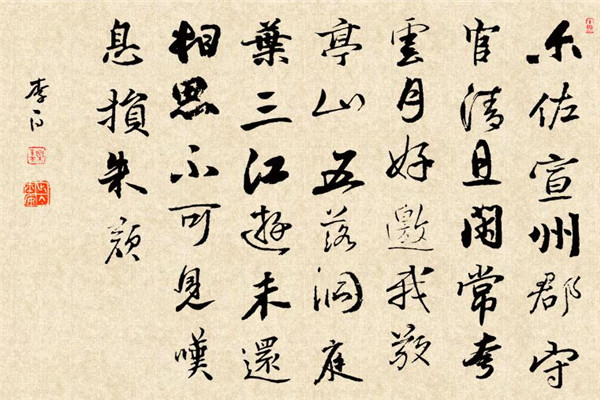 尒佐宣州郡守
官清且閑常夸
雲月好邀我敬
亭山五落洞庭
葉三江遊未還
相思不可見嘆
息損朱顔
李白